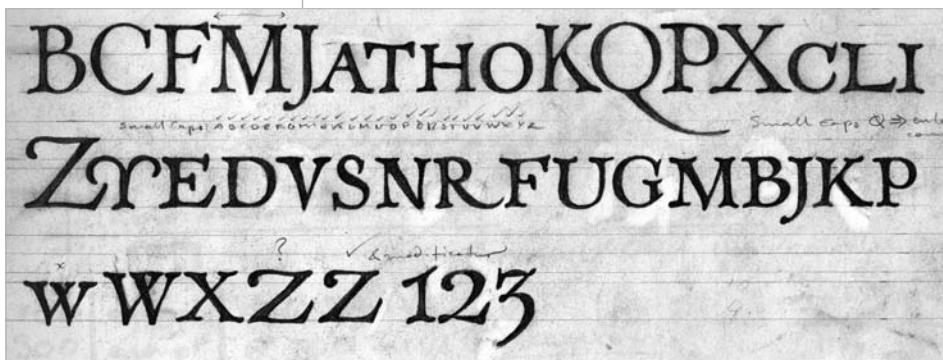 BCFMJATHOKQPXCLI
Small Caps: ABCDEFGHIJKLMNOPQRSTUVWXYZ Small caps Q ⇒
ZYEDVSNRFUGMBJKP
? ✓
x
WWXZZ 123